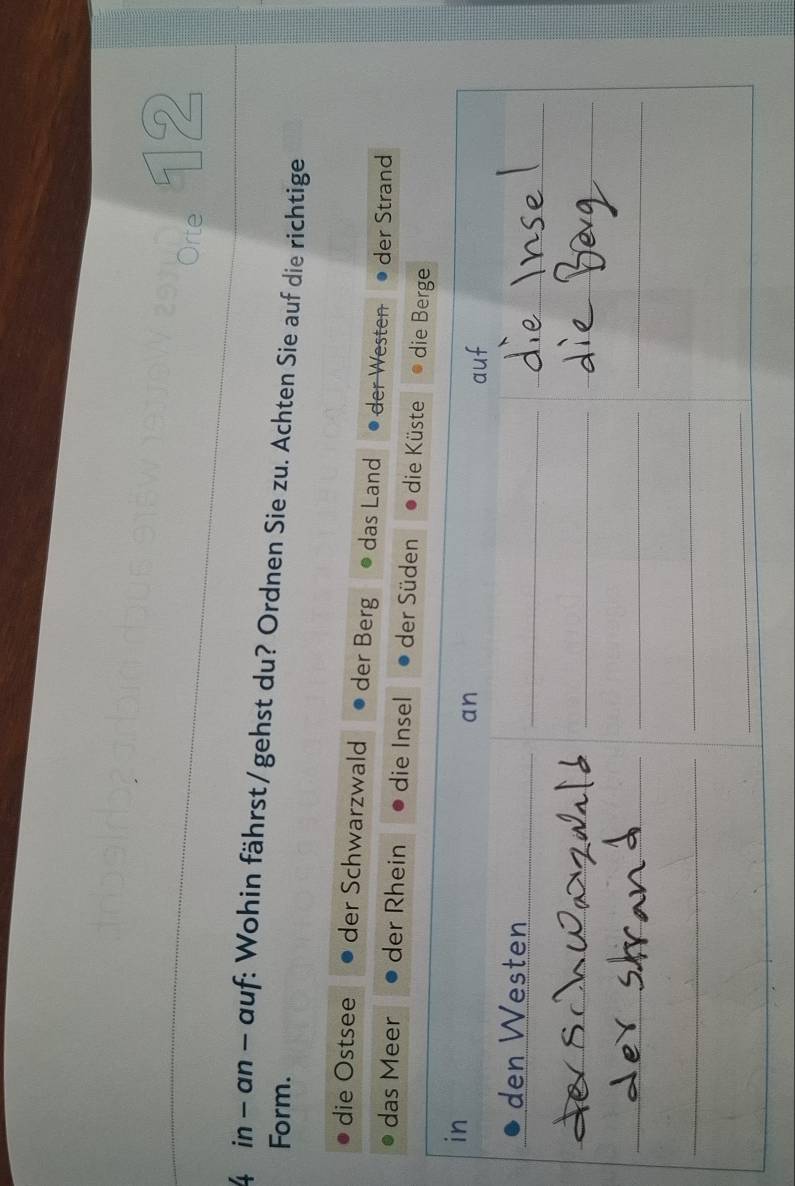 Orte 12
4 in – an – auf: Wohin fährst/gehst du? Ordnen Sie zu. Achten Sie auf die richtige
Form.
die Ostsee der Schwarzwald der Berg das Land der Westen der Strand
das Meer der Rhein die Insel der Süden die Küste die Berge
in an auf
den Westen die Insel
der schwarzwald die Berg
der strand